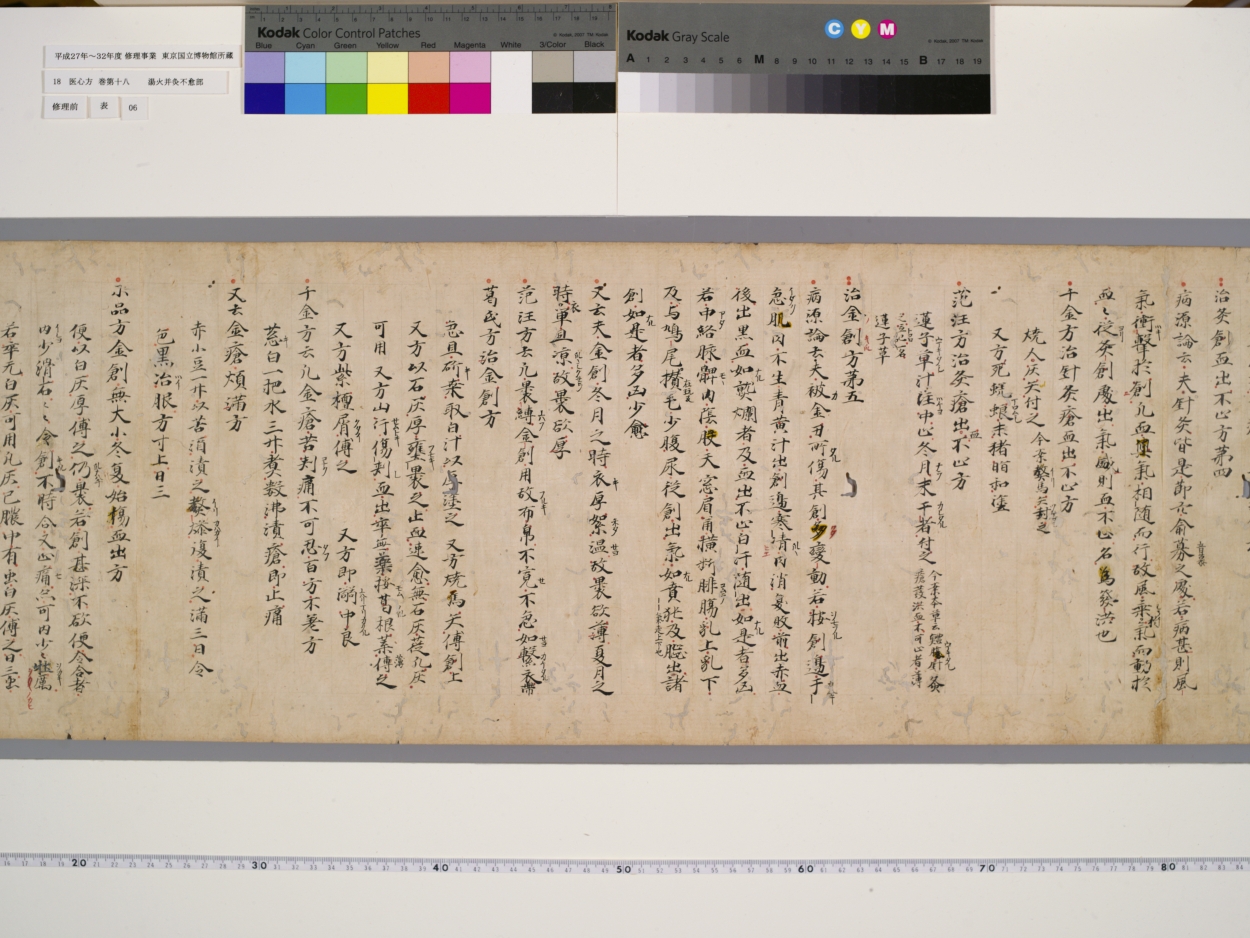 平成27年～32年度 修理事業 東京国立博物館所蔵
18 医心方 巻第十八 湯火并灸不愈部
修理前 表 06
Kodak Color Control Patches
© Kodak, 2007 TM: Kodak
Blue Cyan Green Yellow Red Magenta White 3/Color Black
Kodak Gray Scale
C Y M
© Kodak, 2007 TM: Kodak
A 1 2 3 4 5 6 M 8 9 10 11 12 13 14 15 B 17 18 19
治灸創血出不止方第四
病源論云夫針灸皆是節穴俞募之處若病甚則風
氣衝擊於創凡血與氣相随而行故風乘氣而動於
血〻從灸創處出氣盛則血不止名為發洪也
千金方治針灸瘡血出不止方
燒人屎灰付之 今案燒馬矢封之
又方死蜣蜋末猪脂和塗
范汪方治灸瘡血出不止方
蓮子草汁注中止冬月末干者付之
蓮子草
治金創方第五
病源論云夫被金刃所傷其創多變動若按創邊干
急肌肉不生青黄汁出創邊寒清肉消臭敗前出赤血
後出黒血如熟爛者及血出不止白汁随出如是者多凶
若中絡脉髀内陰股天窓眉角横断腓腸乳上乳下
及与鳩尾攅毛少腹尿從創出氣如賁豘及脳出諸
創如是者多凶少愈
又云夫金創冬月之時衣厚絮温故裹欲薄夏月之
時單且凉故裹欲厚
范汪方云凡裹縛金創用故布帛不寛不急如繋衣帶
葛氏方治金創方
急且斫桒取白汁以厚塗之 又方燒馬矢傅創上
又方以石灰厚壅裹之止血速愈無石灰筵凡灰
可用 又方山行傷刺血出卒無藥挼葛根葉傅之
又方紫檀屑傅之 又方即嚼中艮
千金方云凡金瘡苦刺痛不可忍百方不差方
葱白一把水三升煮数沸漬瘡即止痛
又云金瘡煩滿方
赤小豆一升以苦酒漬之熬燥復漬之滿三日令
色黒治服方寸上日三
小品方金創無大小冬夏始傷血出方
便以白灰厚傅之仍裹若創甚深不欲便令合者
内少滑石〻令創不時合又止痛然可内少〻牡蠣
若卒无白灰可用凡灰已膿中有虫白灰傅之日三虫
20 30 40 50 60 70 80